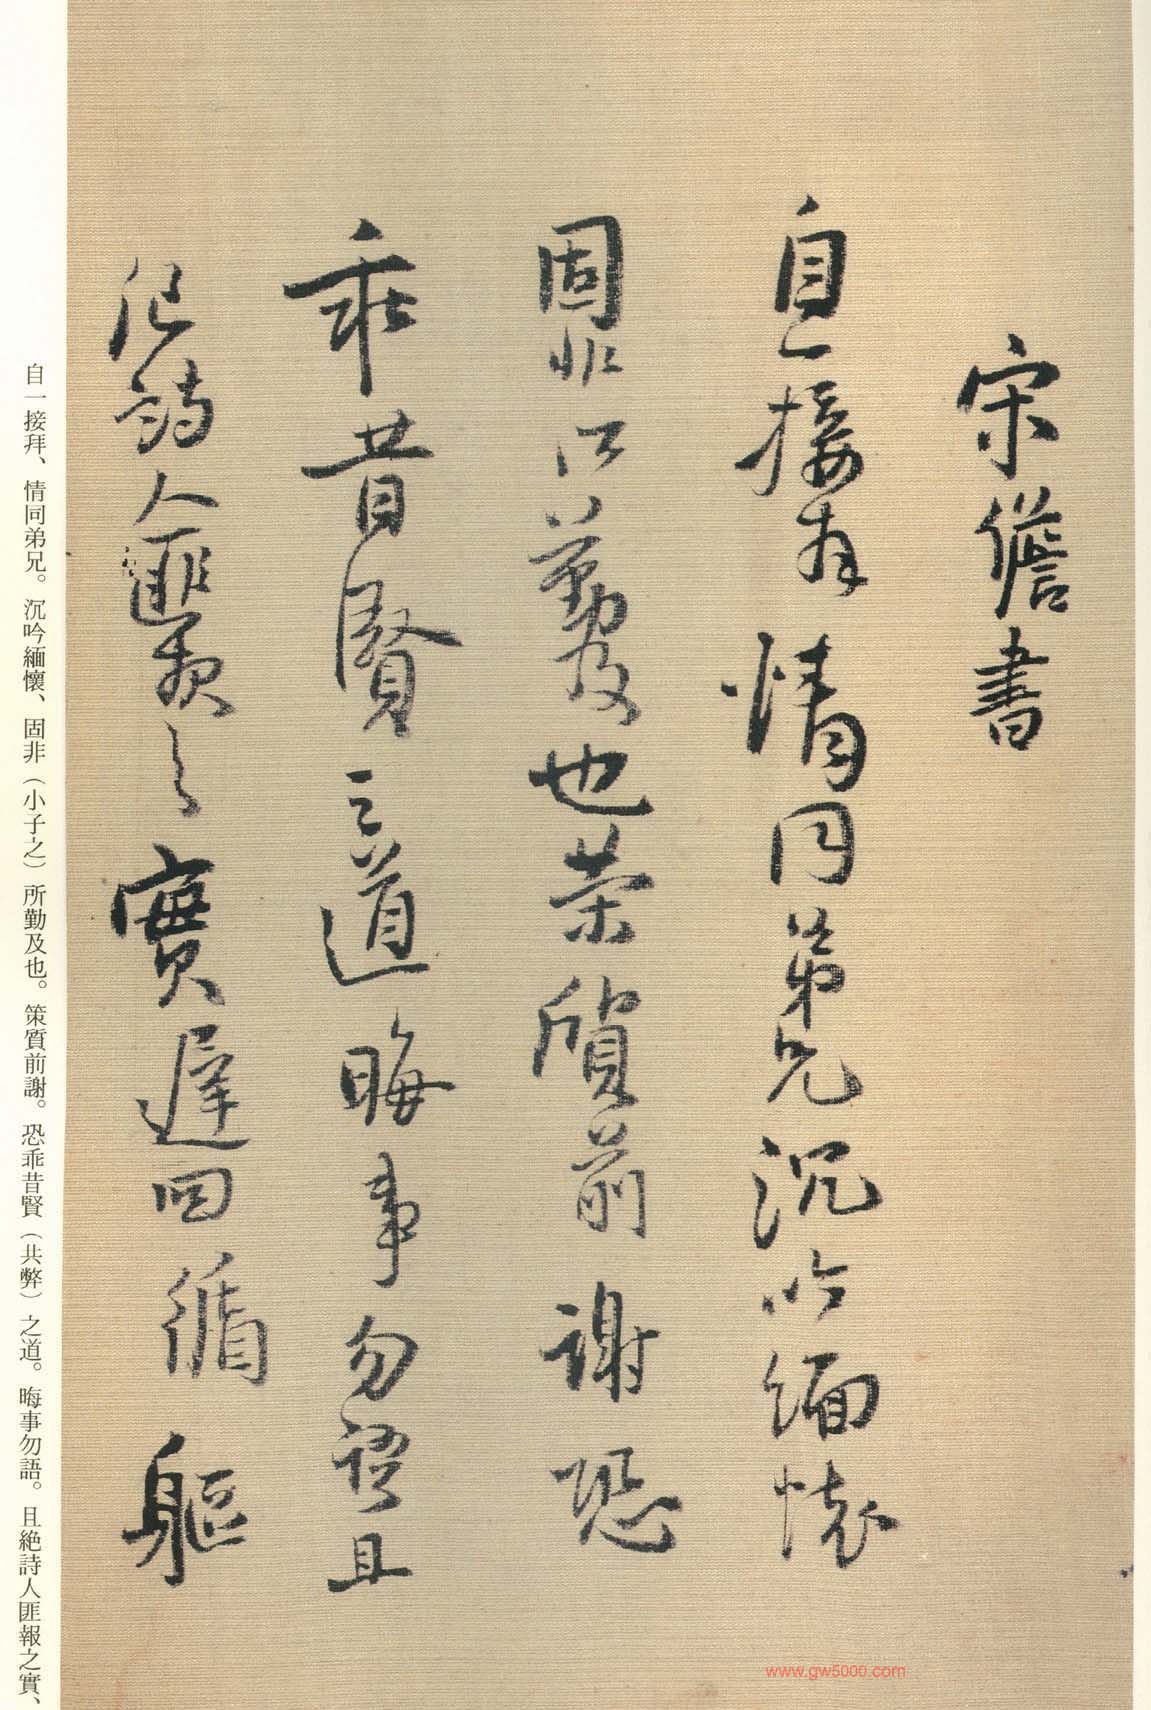 宋儋書
自一接拜情同弟兄沉吟緬懷
固非所勤及也榮質前謝恐
乖昔賢之道晦事勿語且
絕詩人匪報之實遲回循軀
自一接拜、情同弟兄。沉吟緬懷、固非（小子之）所勤及也。策質前謝。恐乖昔賢（共弊）之道。晦事勿語。且絶詩人匪報之實、
www.gw5000.com